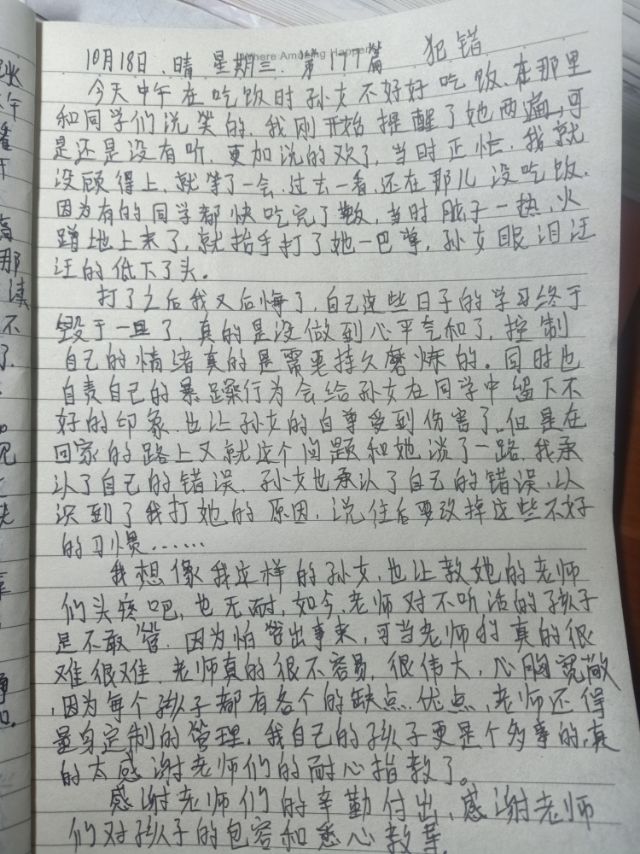 10月18日、晴 星期三. 第177篇 犯错
今天中午在吃饭时孙女不好好吃饭.在那里
和同学们说笑的.我刚开始提醒了她两遍,可
是还是没有听.更加说的欢了,当时正忙.我就
没顾得上.就等了一会.过去一看.还在那儿没吃饭.
因为有的同学都快吃完了 当时脑子一热,火
蹭地上来了,就抬手打了她一巴掌,孙女眼泪汪
汪的低下了头.
打了之后我又后悔了.自己这些日子的学习终于
毁于一旦了.真的是没做到心平气和了.控制
自己的情绪真的是需要持久磨炼的.同时也
自责自己的暴躁行为会给孙女在同学中留下不
好的印象.也让孙女的自尊受到伤害了.但是在
回家的路上又就这个问题和她谈了一路.我承
认了自己的错误.孙女也承认了自己的错误.认
识到了我打她的原因.说往后要改掉这些不好
的习惯……
我想像我这样的孙女,也让教她的老师
们头疼吧,也无耐,如今.老师对不听话的孩子
是不敢管.因为怕管出事来,可当老师的真的很
难很难.老师真的很不容易,很伟大,心胸宽敞
,因为每个孩子都有各个的缺点.优点,老师还得
量身定制的管理,我自己的孩子更是个多事的,真
的太感谢老师们的耐心指教了。
感谢老师们的辛勤付出,感谢老师
们对孩子的包容和悉心教